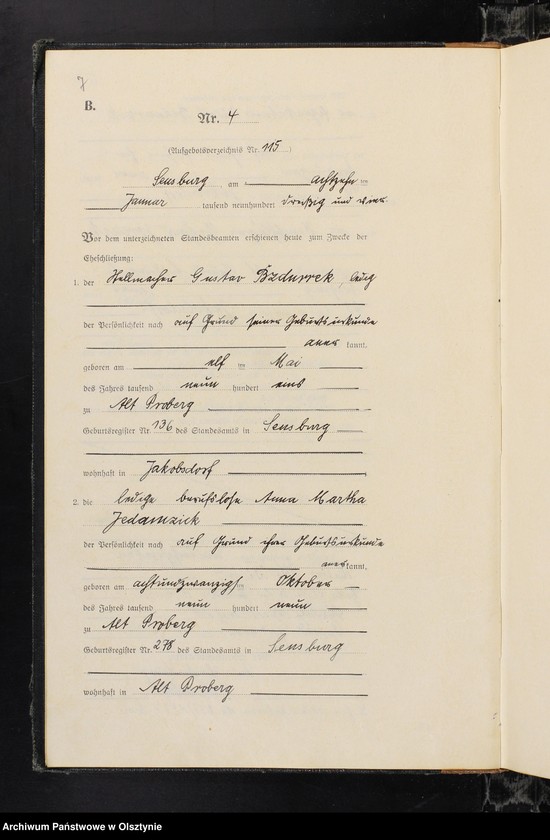 7
B.
Nr. 4
(Aufgebotsverzeichnis Nr. 115)
Sensburg, am achtzehn ten
Januar tausend neunhundert dreißig und vier
Vor dem unterzeichneten Standesbeamten erschienen heute zum Zwecke der
Eheschließung:
1. der Stellmacher Gustav Bzdurrek, ledig
der Persönlichkeit nach auf Grund seiner Geburtsurkunde
aner kannt,
geboren am elf ten Mai
des Jahres tausend neun hundert eins
zu Alt Proberg
Geburtsregister Nr. 136 des Standesamts in Sensburg
wohnhaft in Jakobsdorf
2. die ledige berufslose Anna Martha
Jedamzick
der Persönlichkeit nach auf Grund ihrer Geburtsurkunde
aner kannt,
geboren am achtundzwanzigsten Oktober
des Jahres tausend neun hundert neun
zu Alt Proberg
Geburtsregister Nr. 278 des Standesamts in Sensburg
wohnhaft in Alt Proberg
Archiwum Państwowe w Olsztynie